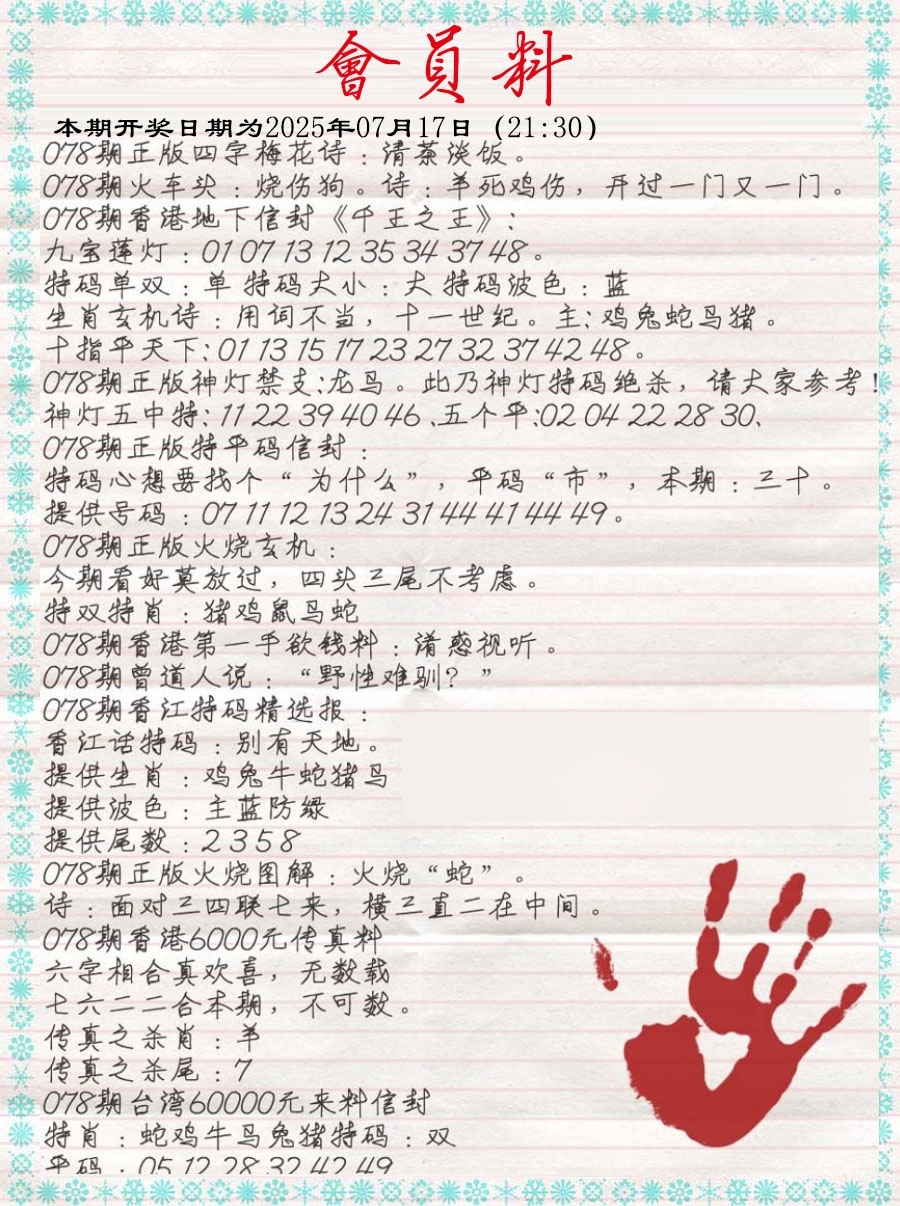 會員料
本期开奖日期为2025年07月17日（21:30）
078期正版四字梅花诗：清茶淡饭。
078期火车头：烧伤狗。诗：羊死鸡伤，开过一门又一门。
078期香港地下信封《千王之王》：
九宝莲灯：01 07 13 12 35 34 37 48。
特码单双：单 特码大小：大 特码波色：蓝
生肖玄机诗：用词不当，十一世纪。主：鸡兔蛇马猪。
十指平天下：01 13 15 17 23 27 32 37 42 48。
078期正版神灯禁支：龙马。此乃神灯特码绝杀，请大家参考！
神灯五中特：11 22 39 40 46 .五个平:02 04 22 28 30.
078期正版特平码信封：
特码心想要找个“为什么”，平码“市”，本期：三十。
提供号码：07 11 12 13 24 31 44 41 44 49。
078期正版火烧玄机：
今期看好莫放过，四头三尾不考虑。
特双特肖：猪鸡鼠马蛇
078期香港第一手欲钱料：淆惑视听。
078期曾道人说：“野性难驯？”
078期香江特码精选报：
香江话特码：别有天地。
提供生肖：鸡兔牛蛇猪马
提供波色：主蓝防绿
提供尾数：2 3 5 8
078期正版火烧图解：火烧“蛇”。
诗：面对三四联七来，横三直二在中间。
078期香港6000元传真料
六字相合真欢喜，无数载
七六二二合本期，不可数。
传真之杀肖：羊
传真之杀尾：7
078期台湾60000元来料信封
特肖：蛇鸡牛马兔猪特码：双
平码：05 12 28 32 42 49